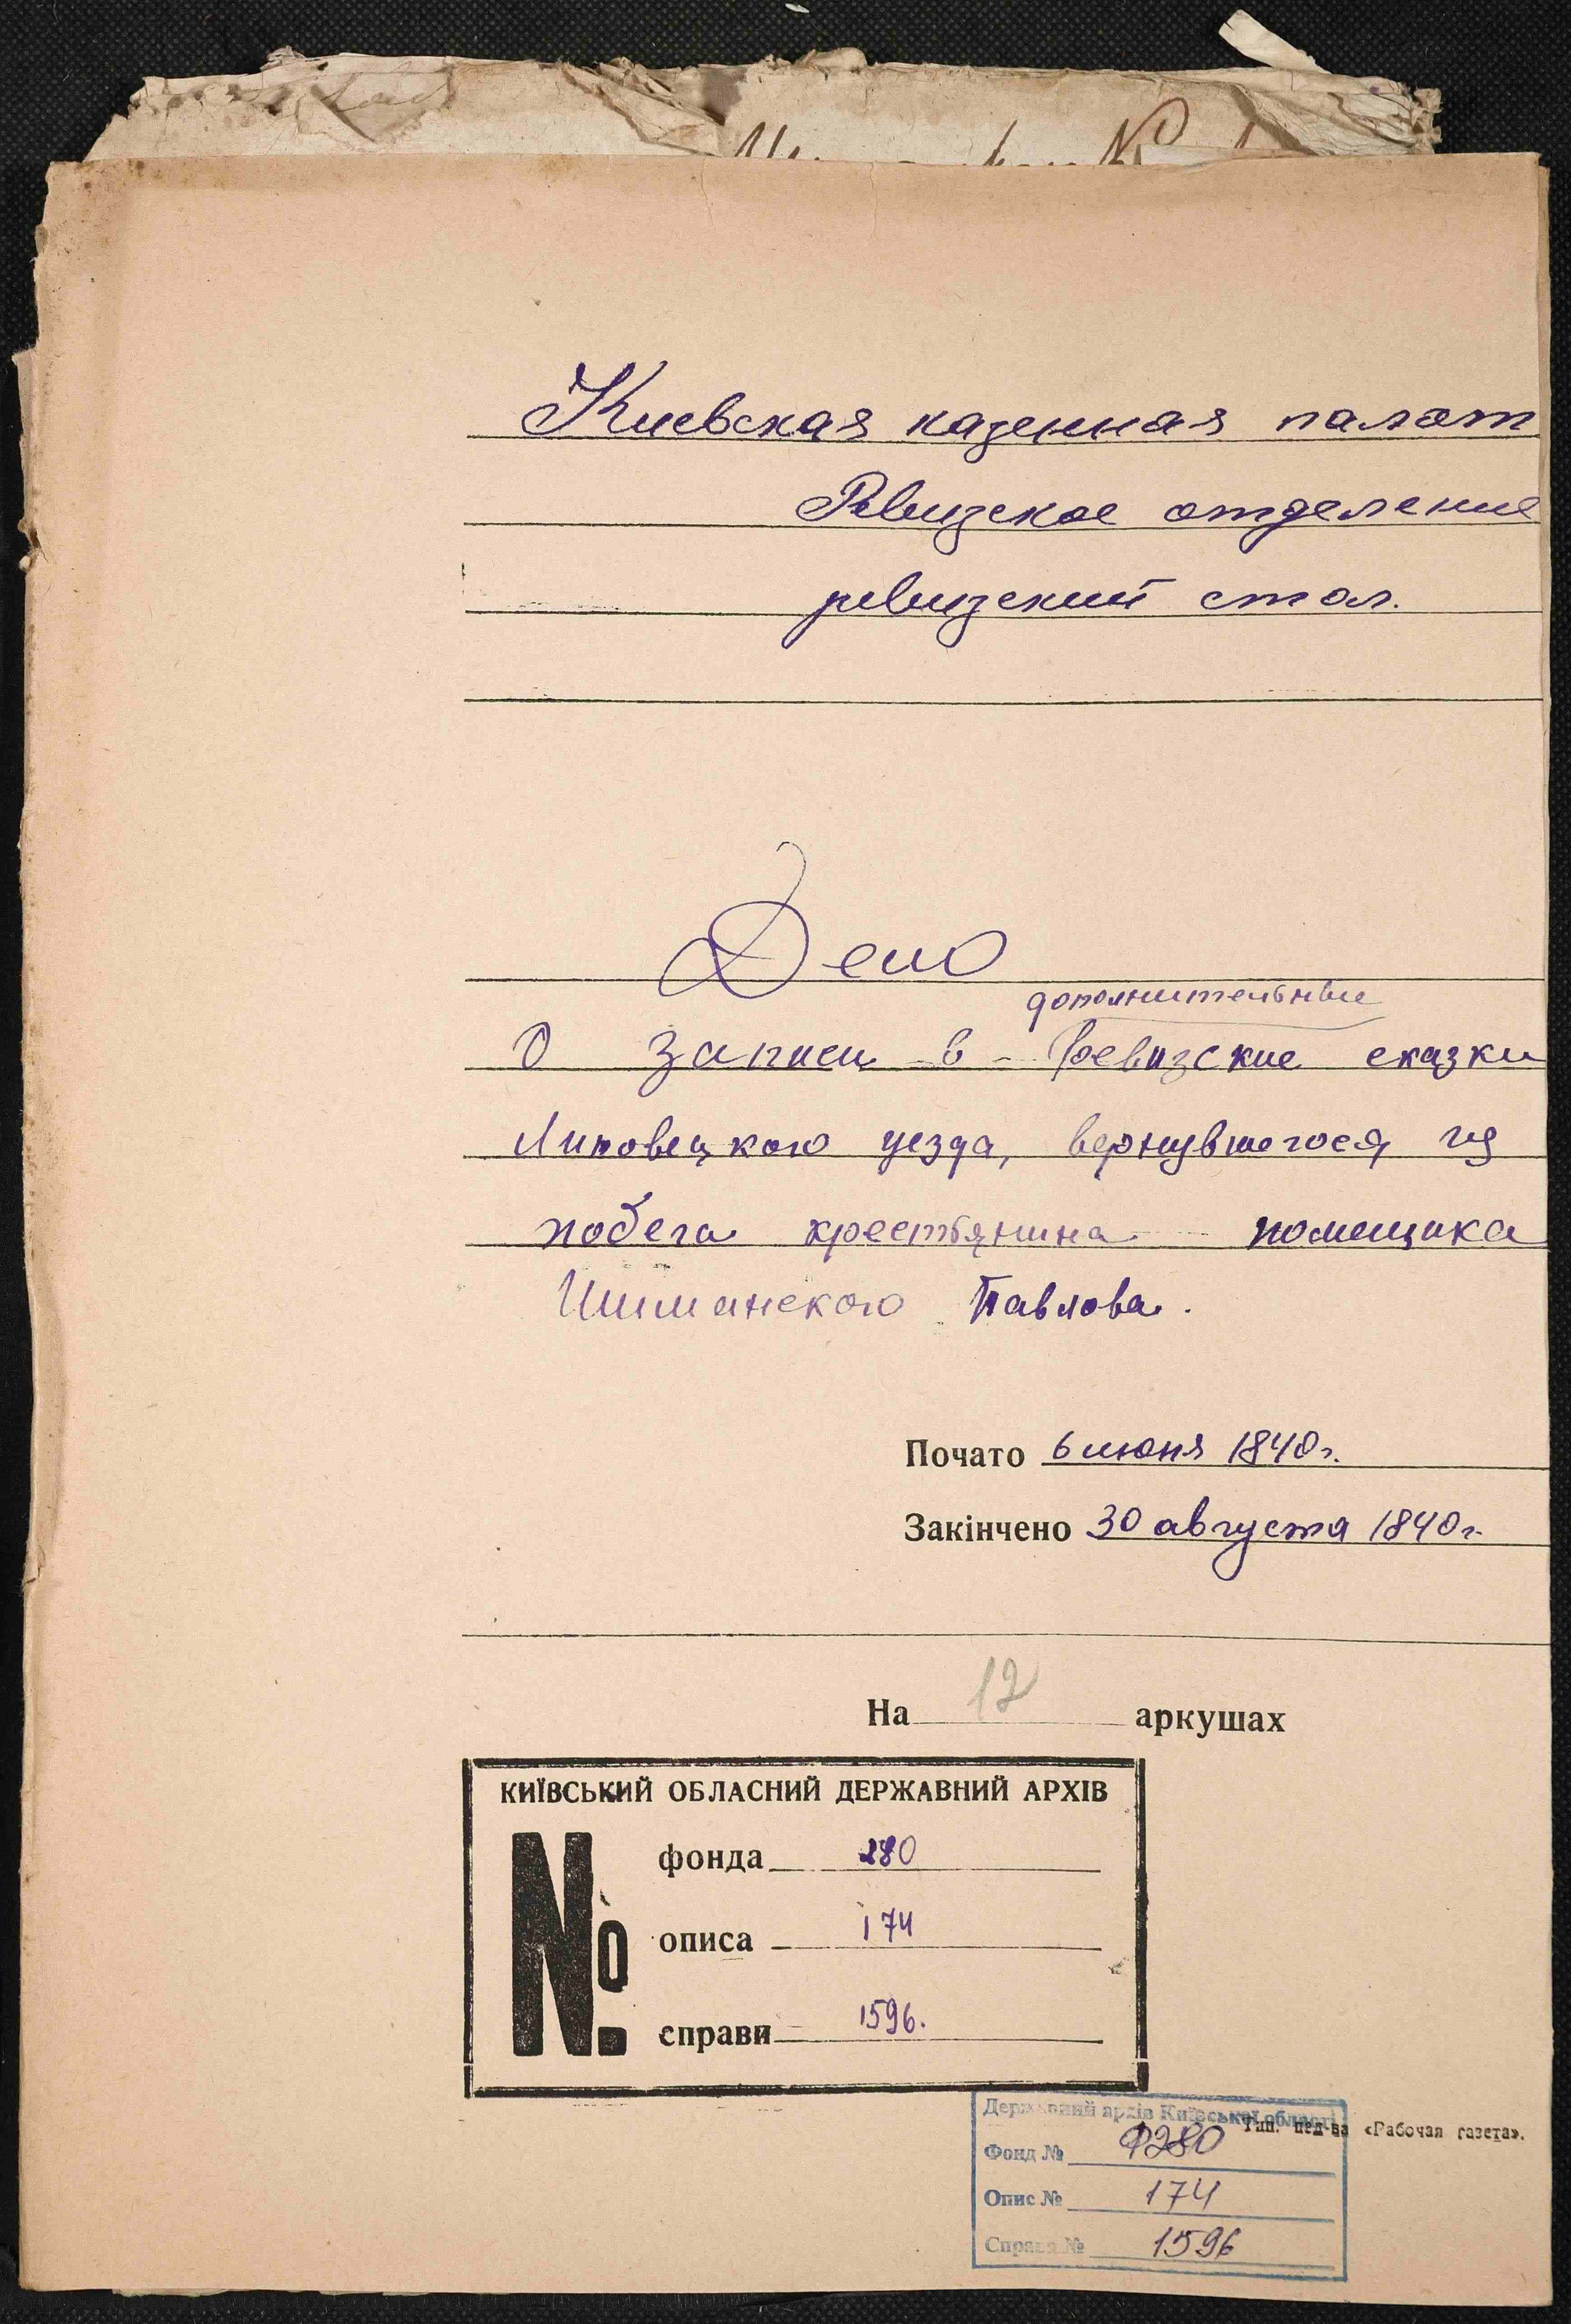 Киевская казенная палат
Ревизское отделение
ревизский стол.
Дело
дополнительные
О записи в ревизские сказки
Липовецкого уезда, вернувшегося из
побега крестьянина помещика
Шиманского Павлова.
Почато 6 июня 1840г.
Закінчено 30 августа 1840г.
На 12 аркушах
КИЇВСЬКИЙ ОБЛАСНИЙ ДЕРЖАВНИЙ АРХІВ
№ фонда 280
описа 174
справи 1596.
Державний архів Київської області
Тип. изд-ва «Рабочая газета».
Фонд № Ф280
Опис № 174
Справа № 1596